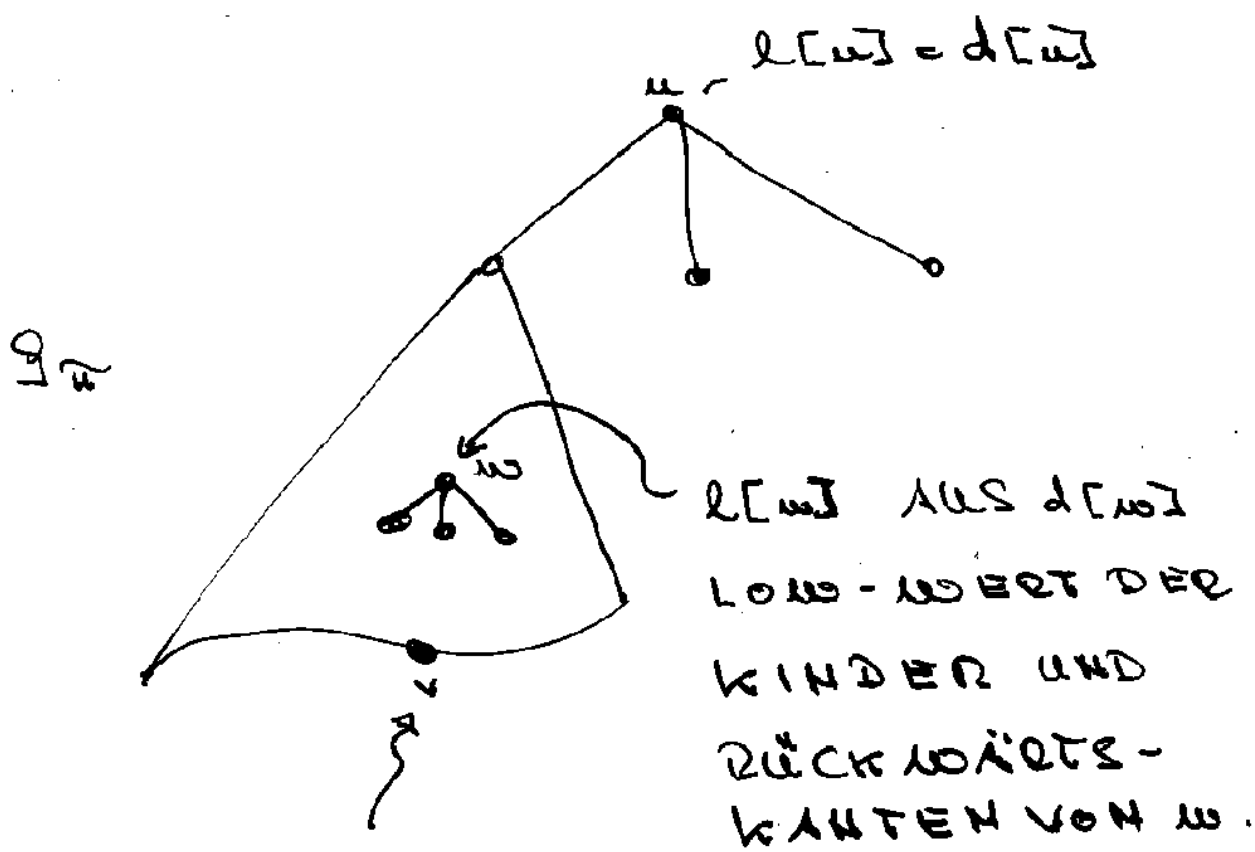 l[u] = d[u]
u
G_π
w
l[w] AUS d[w]
LOW-WERT DER
KINDER UND
v
RÜCKWÄRTS-
KANTEN VON w.